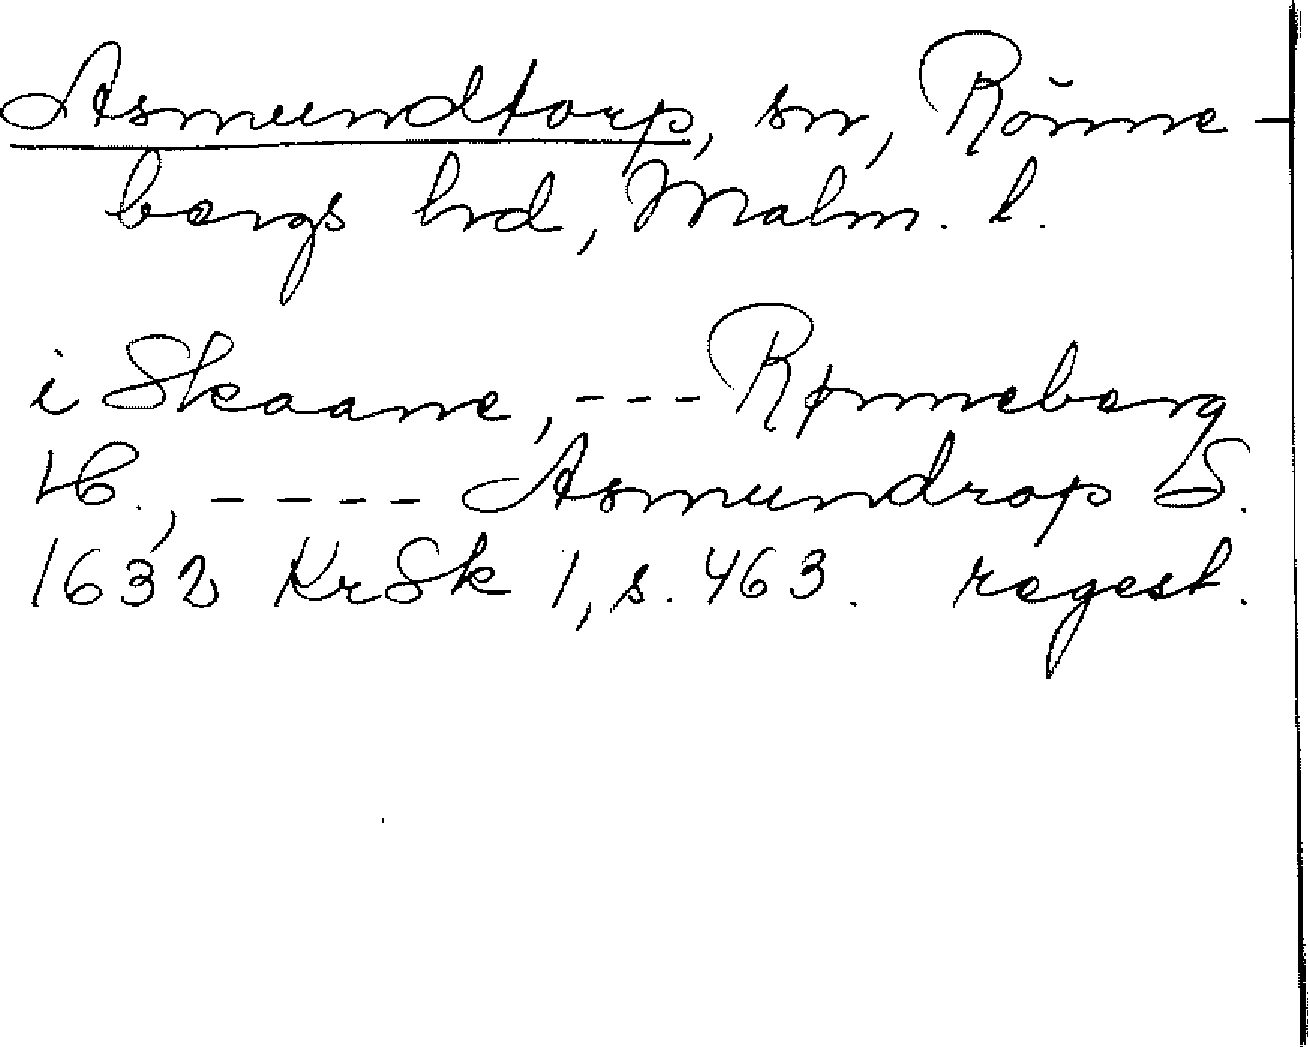 Asmundtorp, sn, Rönne-
bergs hrd, Malm. l.
i Skaane, --- Rønneberg
H., ---- Asmundrop S.
1632 KrSk 1, s. 463. regest.